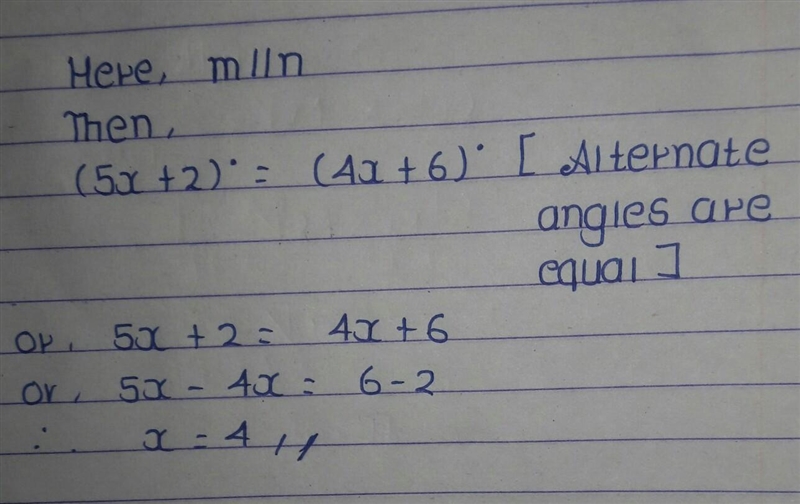 Here, m//n
Then,
(5x+2)° = (4x+6)° [ Alternate
angles are
equal ]
or, 5x + 2 = 4x + 6
or, 5x - 4x = 6 - 2
∴ x = 4 ,,